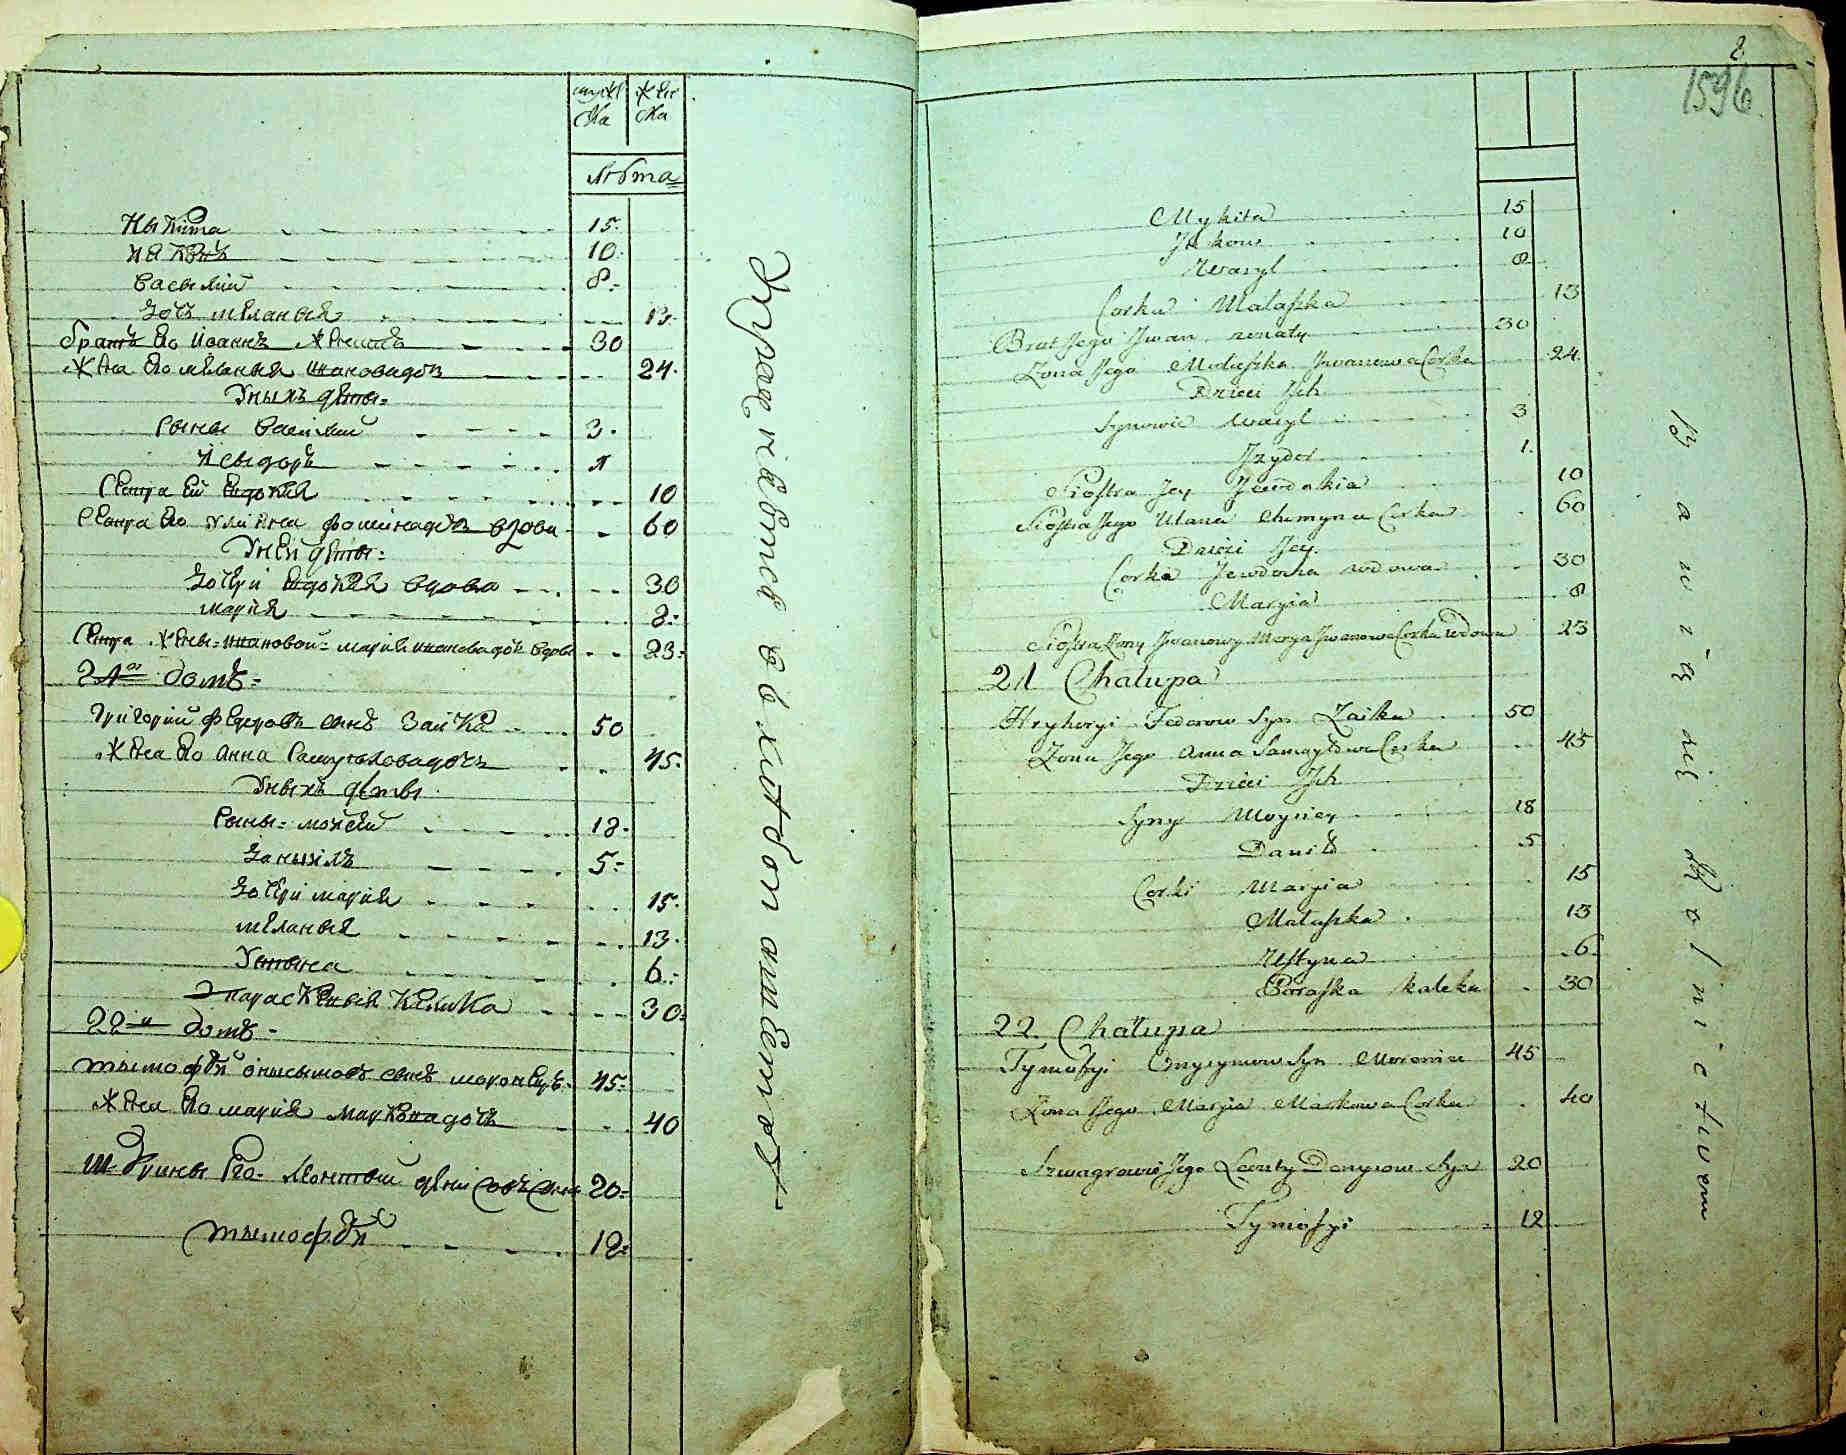 мужс женс
ка ка
лѣта
Ныкита 15
Яковъ 10
Василий 8
дочъ меланыя 13
братъ его Иванъ женатъ 30
жена его меланыя Ивановадочъ 24
Уныхъ дѣты
сыны Василий 3
Исыдоръ 1
сестра ей Евдокия 10
сестра его Улияна фоминадочъ вдова 60
Уней дѣты
дочери Евдокия вдова 30
мария 8
сестра жены Ивановой мария Ивановадочъ вдова 23
21й домъ
григорий федоровъ сынъ Заика 50
жена его Анна Самуиловадочъ 45
Уныхъ дѣты
сыны мойсей 18
даниилъ 5
дочери мария 15
меланыя 13
Устына 6
параскевыя калика 30
22й домъ
тымофѣй онысымовъ сынъ моронецъ 45
жена его мария марковадочъ 40
Шурины его Леонтий денисовъ сынъ 20
тымофѣй 12
2
1596
Mykita 15
Jakow 10
Wasyl 8
Corka Malaszka 13
Brat Jego Jwan zonaty 30
Zona Jego Malaszka Jwanowa Corka 24
Dzieci Jch
Synowie Wasyl 3
Jzydor 1
Siostra Jey Jewdokia 10
Siostra Jego Ulana Chomyna Corka 60
Dzieci Jey
Corka Jewdocha wdowa 30
Maryia 8
Siostra Zony Jwanowey Marya Jwanowa Corka wdowa 23
21 Chalupa
Hryhoryi Fedorow Syn Zaika 50
Zona Jego Anna Samoyłowa Corka 45
Dzieci Jch
Syny Moysiey 18
Daniło 5
Corki Maryia 15
Malaszka 13
Ustyna 6
Paraska kaleka 30
22 Chałupa
Tymofyi Onysymow Syn Moroniec 45
Zona Jego Maryia Markowa Corka 40
Szwagrowie Jego Leonty Denysow Syn 20
Tymofyi 12